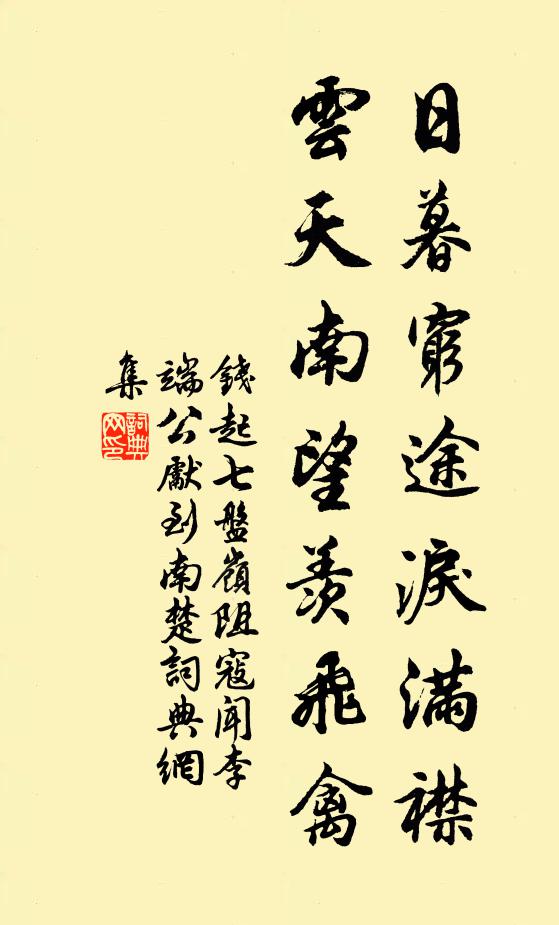 日暮窮途淚滿襟
雲天南望羨飛禽
錢起七盤嶺阻寇聞李
端公獻到南楚詞典網
集
詞典
网印